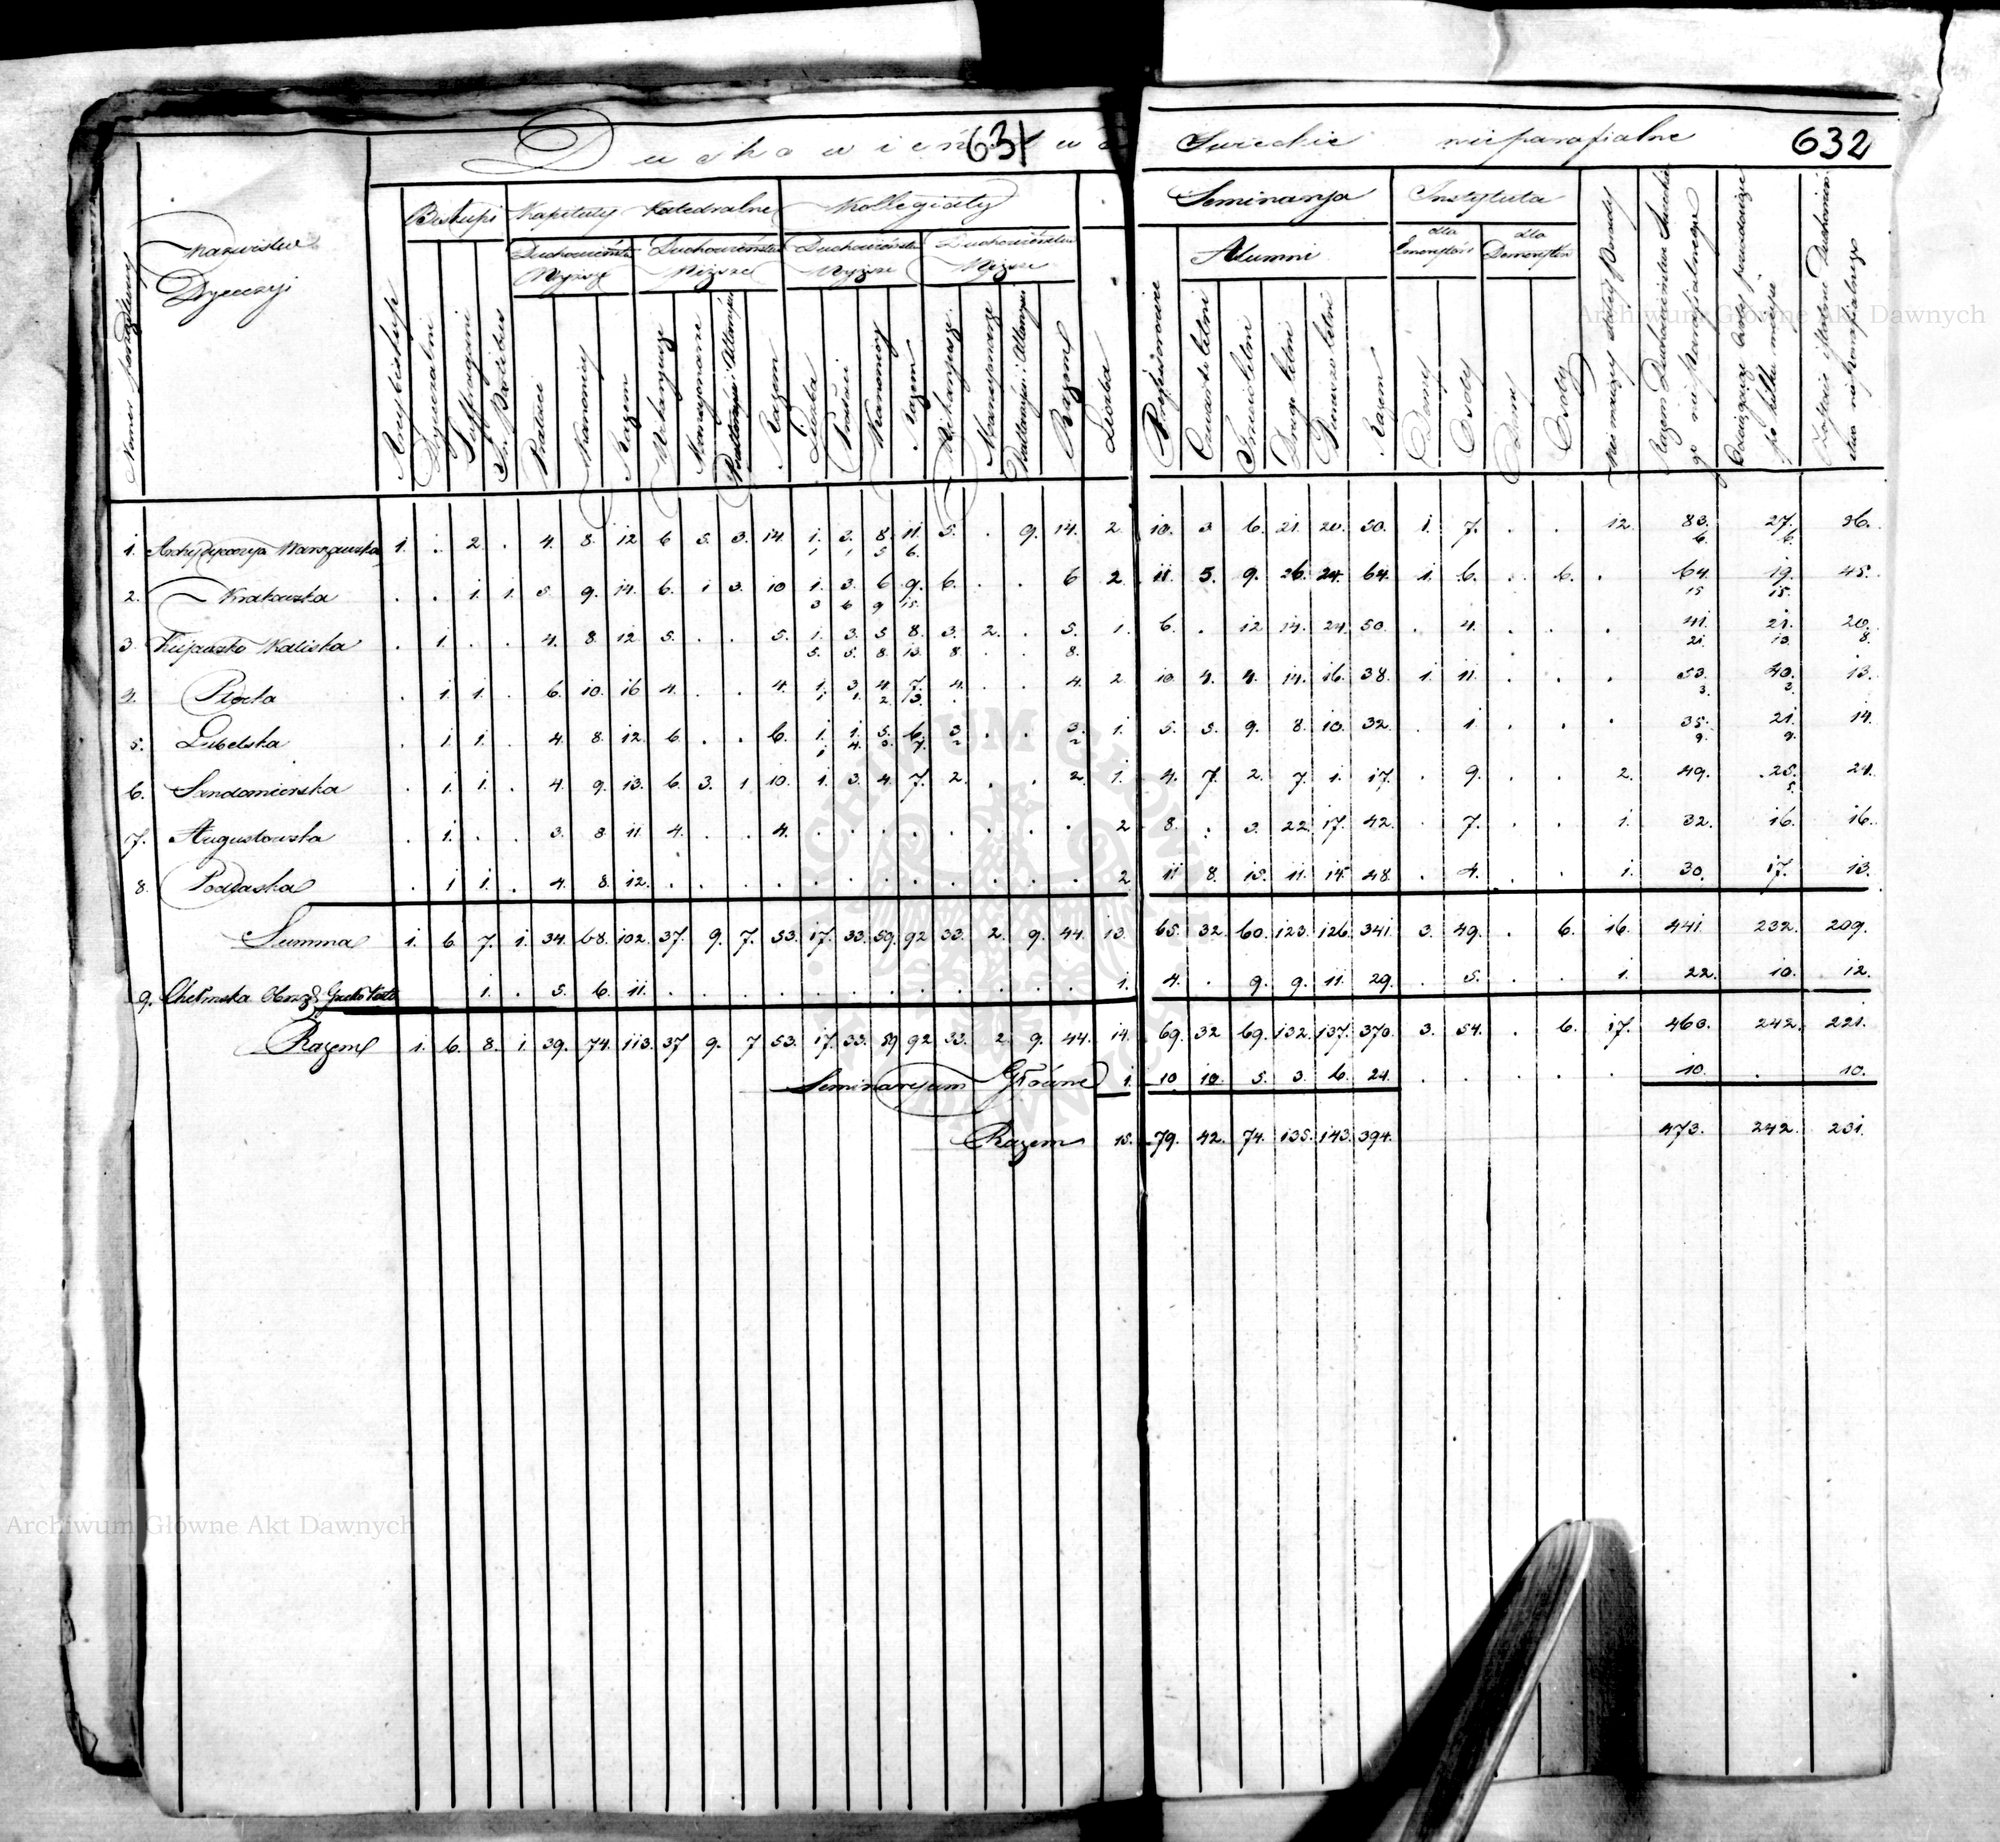 Duchowieństwo 631 Świeckie nieparafialne 632
Numer porządkowy
Nazwisko Dyecezyi
Biskupi Kapituły Katedralne Kollegiaty Seminarya Instytuta
Duchowieństwo Wyższe Duchowieństwo Niższe Duchowieństwo Wyższe Duchowieństwo Niższe Alumni dla Emerytów dla Demerytów
Arcybiskup Dyecezalni Suffragani In Partibus Prałaci Kanonicy Razem Wikaryusze Mansyonarze Razem Liczba Prałaci Kanonicy Razem Wikaryusze Mansyonarze Razem Liczba Professorowie Czwartoletni Trzecioletni Drugoletni Pierwszoletni Razem Domy Osoby Domy Osoby
Razem Duchowieństwa Świeckiego nieparafialnego
1. Archydyecezya Warszawska 1. . 2. . 4. 8. 12 6 5. 3. 14. 1. 3. 8. 11. 5. . 9. 14. 2 10. 3 6. 21. 20. 50. 1. 7. . . 12. 83. 27. 56.
1, 1, 5 6. 6. 6.
2. Krakowska . . 1. 1. 5. 9. 14. 6. 1 3. 10 1. 3. 6 9. 6. . . 6 2 11. 5. 9. 26. 24. 64. 1. 6. . 6. . 64. 19. 45.
3 6 9 15. 15 15.
3 Kujawsko Kaliska . 1. . . 4. 8. 12 5. . . 5. 1. 3. 5 8. 3. 2. . 5. 1. 6. . 12 14. 24. 50. . 4. . . . 41. 21. 20.
5. 5. 8. 13. 8. . . 8. 21. 13. 8.
4. Płocka . 1. 1. . 6. 10. 16 4. . . 4. 1. 3. 4. 7. 4. . . 4. 2 10 4. 4. 14. 16. 38. 1. 11. . . . 53. 40. 13.
1, 1. 2. 3. 3. 3.
5. Lubelska . 1. 1. . 4. 8. 12. 6. . . 6. 1. 1. 5. 6. 3 . . 3. 1. 5. 5. 9. 8. 10. 32. . 1. . . . 35. 21. 14.
6. Sandomierska . 1. 1. . 4. 9. 13. 6. 3. 1 10. 1. 3. 4. 7. 2. . . 2. 1. 4. 7. 2. 7. 1. 17. . 9. . . 2. 49. 25. 24.
5.
7. Augustowska . 1. . . 3. 8 11. 4. . . 4. . . . . . . . . 2 8. . 3. 22. 17. 42. . 7. . . 1. 32. 16. 16.
8. Podlaska . 1 1. . 4. 8. 12. . . . . . . . . . . . . 2 11. 8. 15. 11. 14. 48. . 4. . . 1. 30. 17. 13.
Summa 1. 6. 7. 1. 34. 68. 102. 37. 9. 7. 53. 17. 33. 59. 92 33. 2. 9. 44. 13. 65. 32. 60. 123. 126. 341. 3. 49. . 6. 16. 441. 232. 209.
9. Chełmska Obrzą: Grecko Kato 1. . 5. 6. 11. . . . . . . . . . . . . 1. 4. . 9. 9. 11. 29. . 5. . . 1. 22. 10. 12.
Razem 1. 6. 8. 1. 39. 74. 113. 37 9. 7 53. 17. 33. 59 92 33. 2. 9. 44. 14. 69. 32 69. 132. 137. 370. 3. 54. . 6. 17. 463. 242. 221.
Seminaryum Główne 1. 10 10. 5. 3. 6. 24. . . . . . 10. . 10.
Razem 15. 79. 42. 74. 135. 143. 394. 473. 242. 231.
Archiwum Główne Akt Dawnych
Archiwum Główne Akt Dawnych